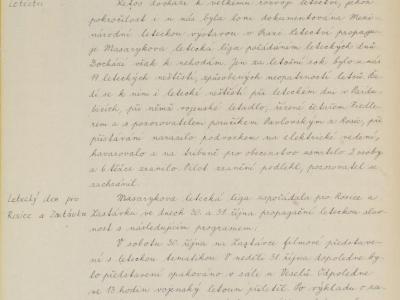 Letectví
Letos dochází k velkému rozvoji letectví, jehož
pokročilost i u nás byla loni dokumentována Mezi-
národní leteckou výstavou v Praze. Letectví propagu-
je Masarykova letecká liga pořádáním leteckých dnů.
Dochází však k nehodám. Jen za letošní rok bylo u nás
19 leteckých neštěstí, způsobených neopatrností letců. Řa-
dí se k nim i letecké neštěstí při leteckém dni v Pardu-
bicích, při němž vojenské letadlo, řízené četařem Fiedle-
rem a s pozorovatelem poručíkem Pavlovským z Rosic, při
přistávání narazilo podvozkem na elektrické vedení,
havarovalo a na tribuně pro obecenstvo usmrtilo 2 osoby
a 6 těžce zranilo. Pilot zranění podlehl, pozorovatel se
zachránil.
Letecký den pro
Rosice a Zastávku
Masarykova letecká liga uspořádala pro Rosice a
Zastávku ve dnech 30. a 31. října propagační leteckou slav-
nost s následujícím programem:
V sobotu 30. října na Zastávce filmové představe-
ní s leteckou tematikou. V neděli 31. října dopoledne by-
lo představení opakováno v sále u Veselů. Odpoledne
ve 13 hodin vojenský letoun přiletěl. Po výkladu o za-